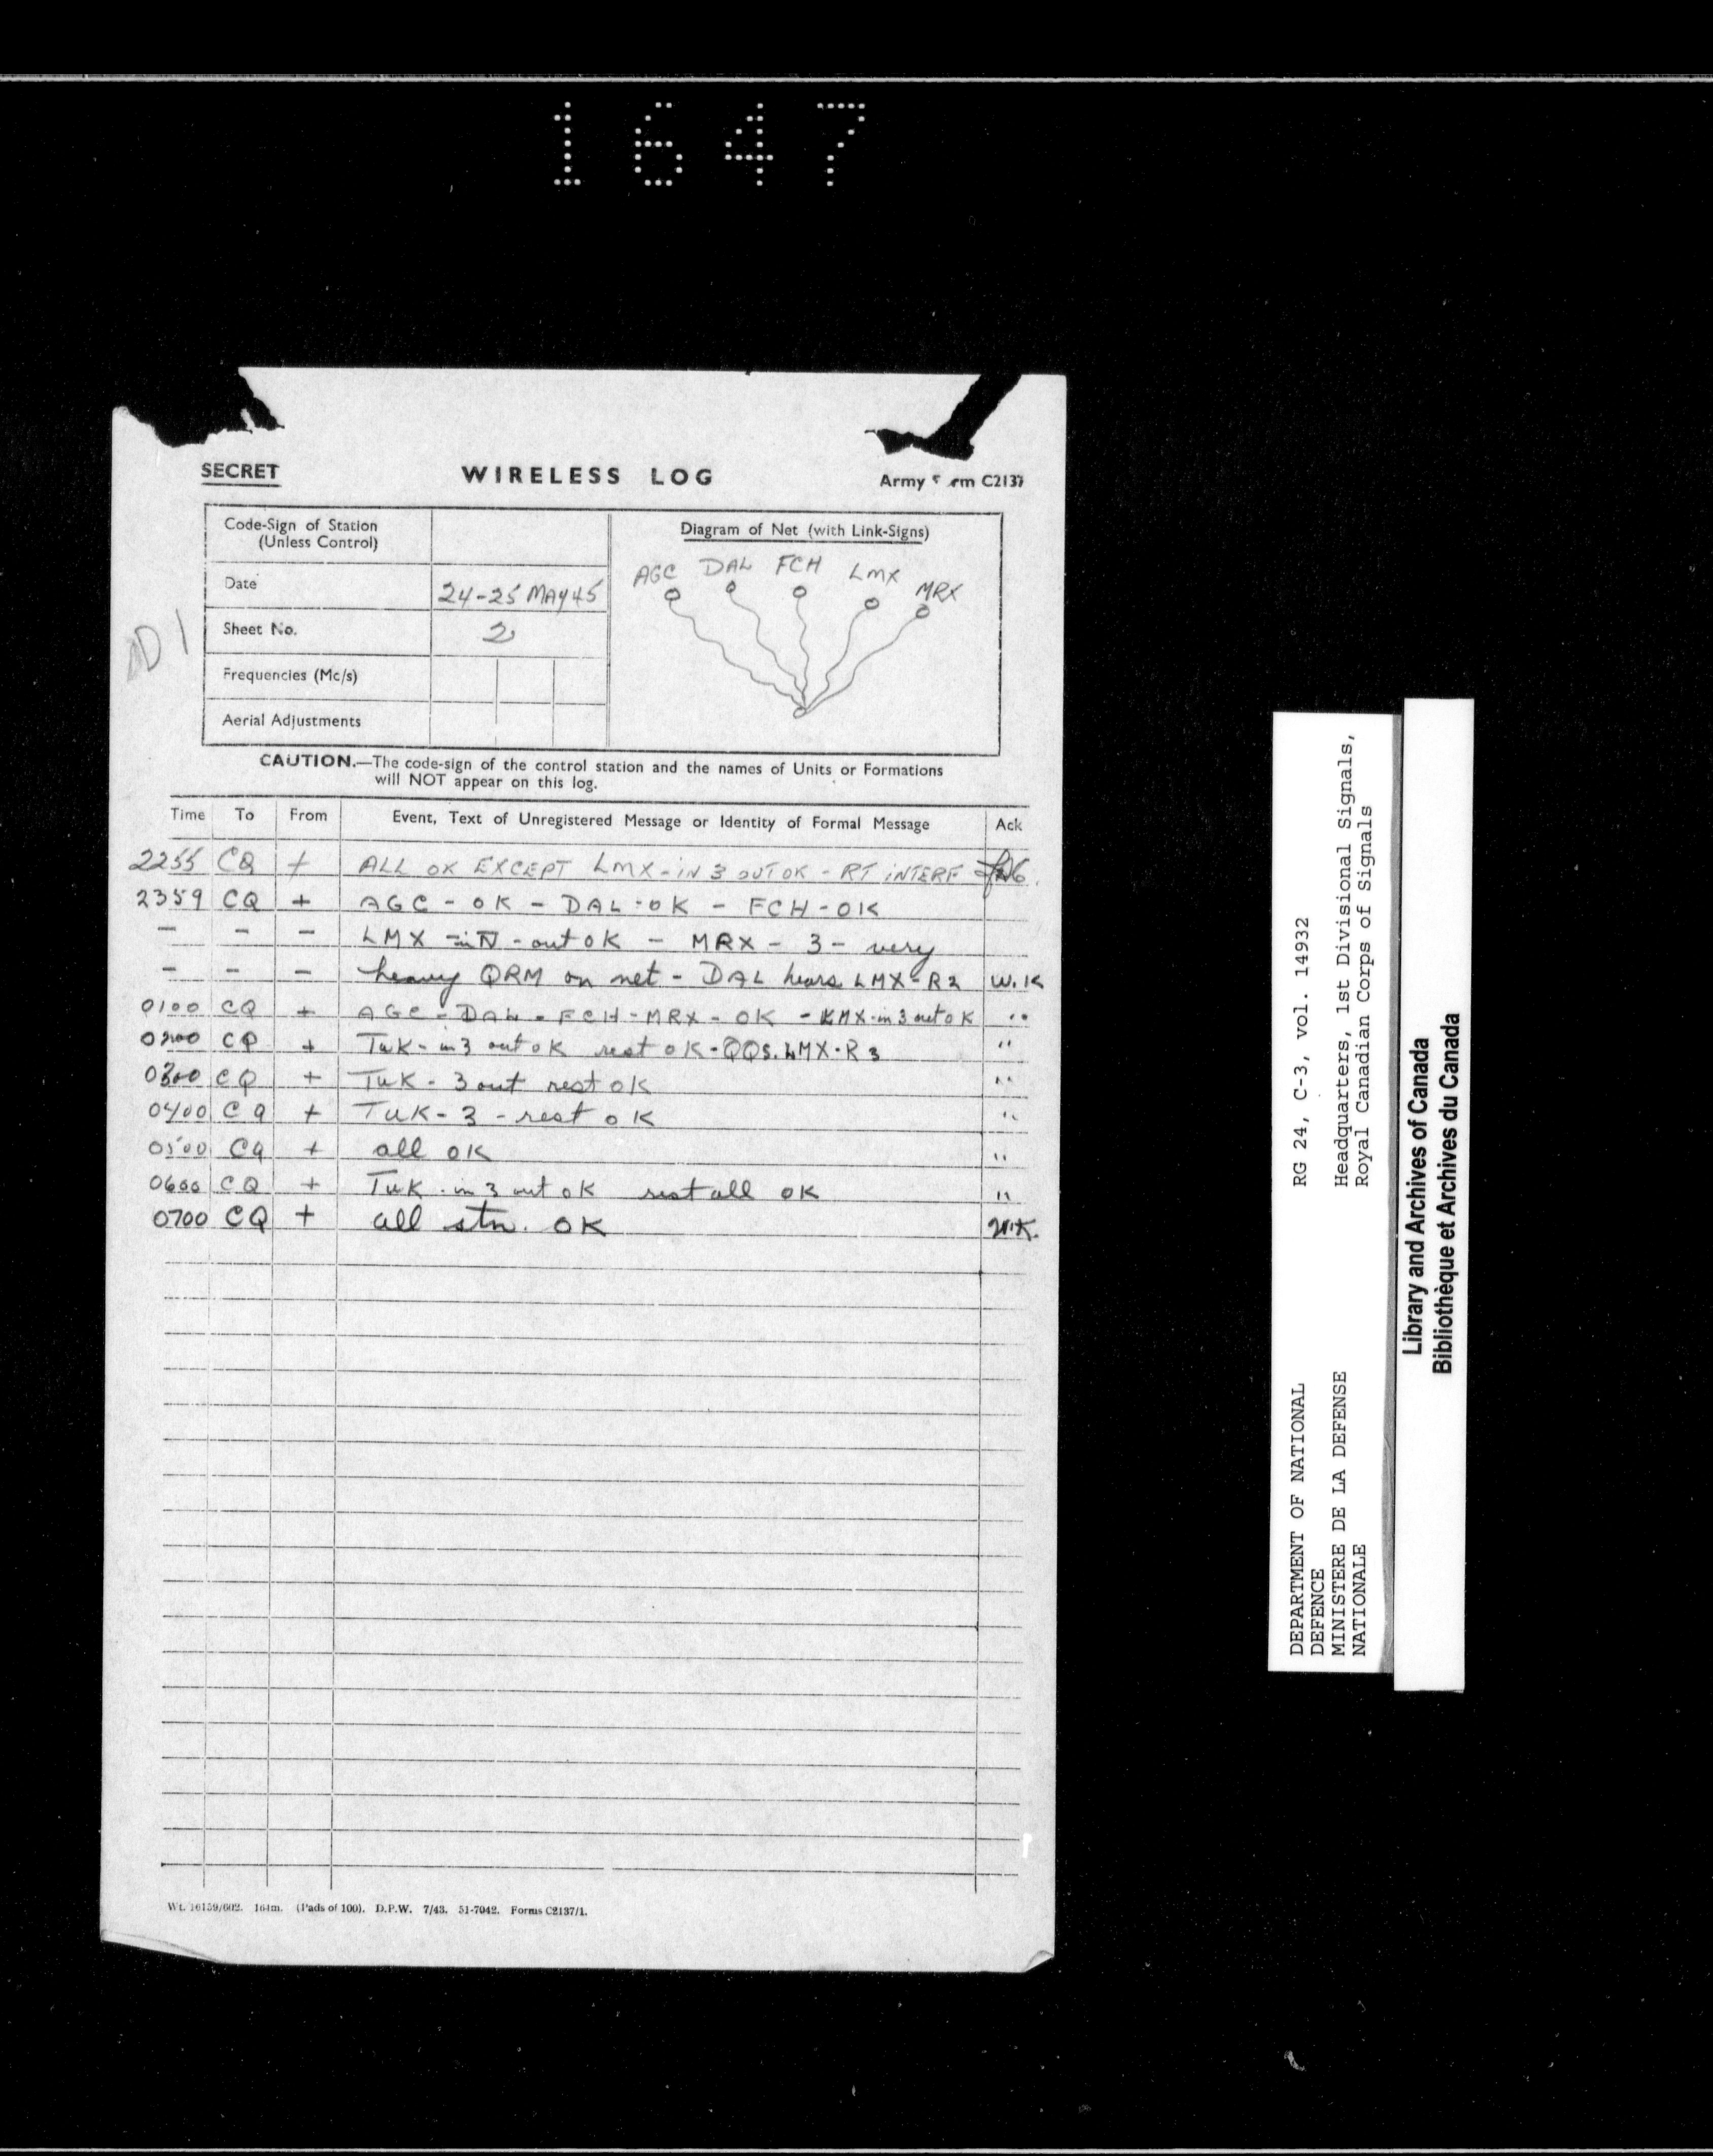 1647
SECRET
WIRELESS LOG
Army Form C2137
Code-Sign of Station
(Unless Control)
Date
24-25 MAY 45
Sheet No.
2
Frequencies (Mc/s)
Aerial Adjustments
D1
Diagram of Net (with Link-Signs)
AGC DAL FCH LMX MRX
CAUTION.—The code-sign of the control station and the names of Units or Formations
will NOT appear on this log.
Time To From Event, Text of Unregistered Message or Identity of Formal Message Ack
2255 CQ + ALL OK EXCEPT LMX - IN 3 OUT OK - RT INTERF
2359 CQ + AGC - OK - DAL - OK - FCH - OK
- - - LMX - in - out OK - MRX - 3 - very
- - - heavy QRM on net - DAL hears LMX - R2 W.K
0100 CQ + AGC - DAL - FCH - MRX - OK - LMX - in 3 out OK "
0200 CQ + TUK - in 3 out OK rest OK - QQS. LMX - R3 "
0300 CQ + TUK - 3 out rest OK "
0400 CQ + TUK - 3 - rest OK "
0500 CQ + all OK "
0600 CQ + TUK - in 3 out OK rest all OK "
0700 CQ + all stn. OK W.K.
Wt. 16159/602. 164m. (Pads of 100). D.P.W. 7/43. 51-7042. Forms C2137/1.
DEPARTMENT OF NATIONAL
DEFENCE
MINISTERE DE LA DEFENSE
NATIONALE
RG 24, C-3, vol. 14932
Headquarters, 1st Divisional Signals,
Royal Canadian Corps of Signals
Library and Archives of Canada
Bibliothèque et Archives du Canada